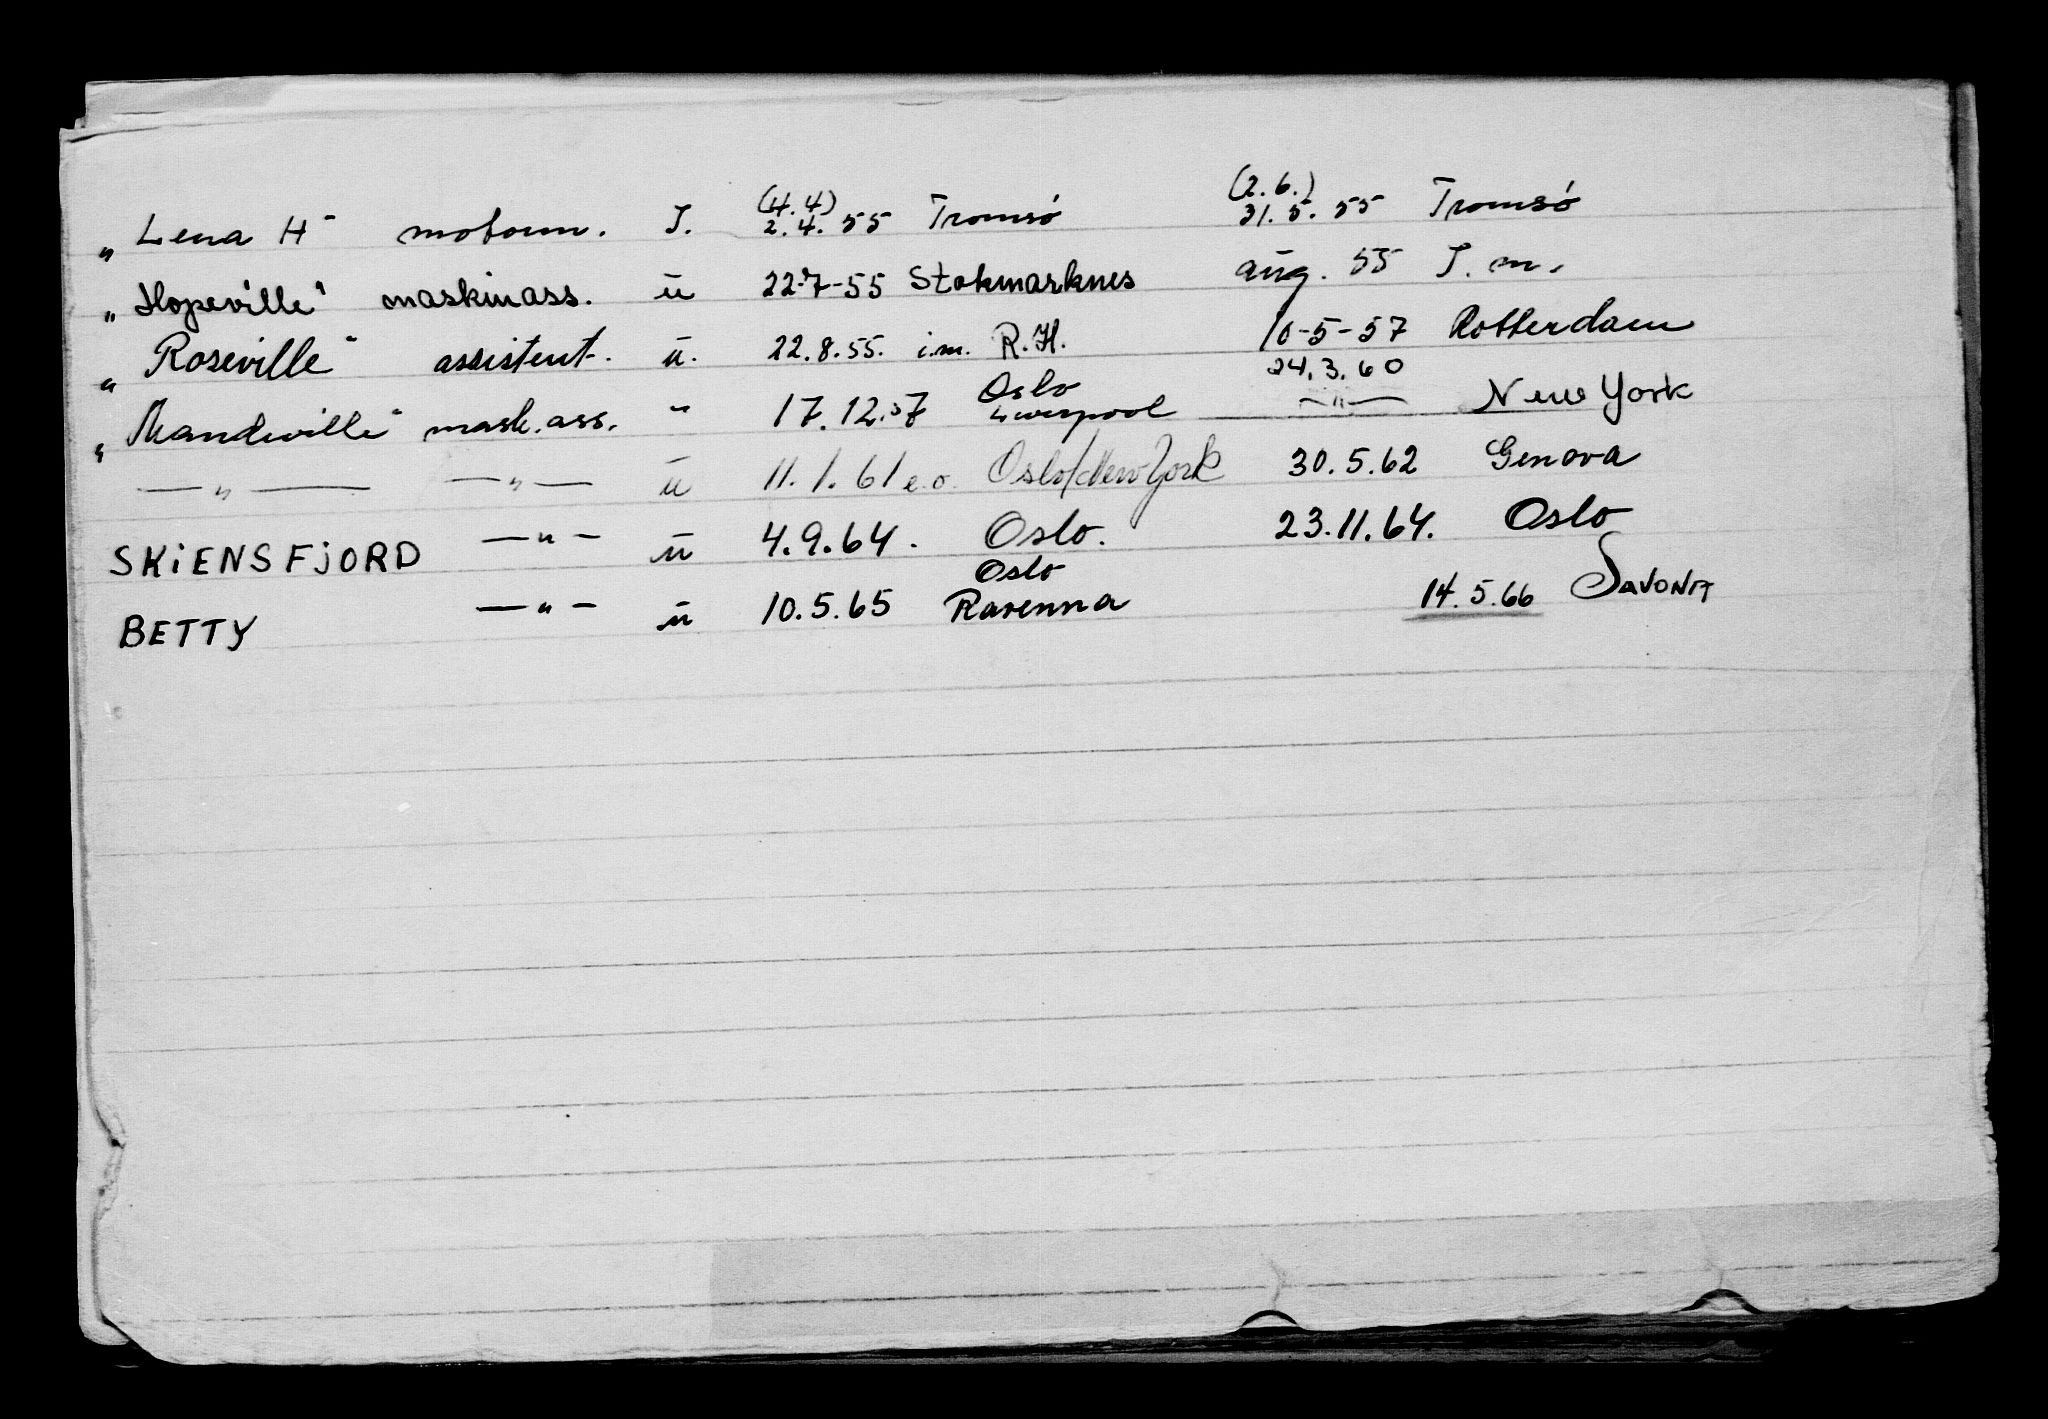 „Lena H" motorm. I. (4.4) 2.4.55 Tromsø (2.6.) 31.5.55 Tromsø
„Hopeville" maskinass. u 22-7-55 Stokmarknes aug. 55 I.m.
„Roseville" assistent. u. 22.8.55. i.m. R.H. 10-5-57 Rotterdam
„Mandeville" mask.ass. " 17.12.57 Oslo Liverpool 24.3.60 —"— New York
—"— —"— u 11.1.61 e.o. Oslo/New York 30.5.62 Genova
SKiENSFjORD —"— u 4.9.64. Oslo. 23.11.64. Oslo
BETTY —"— u 10.5.65 Oslo Ravenna 14.5.66 SAVONA